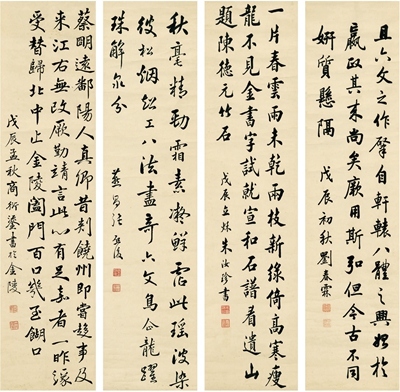 且六文之作肇自軒轅八體之興始於
嬴政其來尚矣厥用斯弘但今古不同
妍質懸隔 戊辰初秋劉春霖
一片春雲雨未乾兩枝新綠倚高寒瘦
龍不見金書字試就宣和石譜看遺山
題陳德元竹石 戊辰立秋朱汝珍書
秋毫精勁霜素凝鮮霑此瑤波染
彼松烟超工八法盡奇六文鳥企龍躍
珠解泉分
張啟後
蔡明遠鄱陽人真卿昔刺饒州即嘗趨事及
來江右無改厥勤靖言此心有足嘉者一昨緣
受替歸北中止金陵闔門百口幾至餬口
戊辰孟秋商衍鎏書於金陵